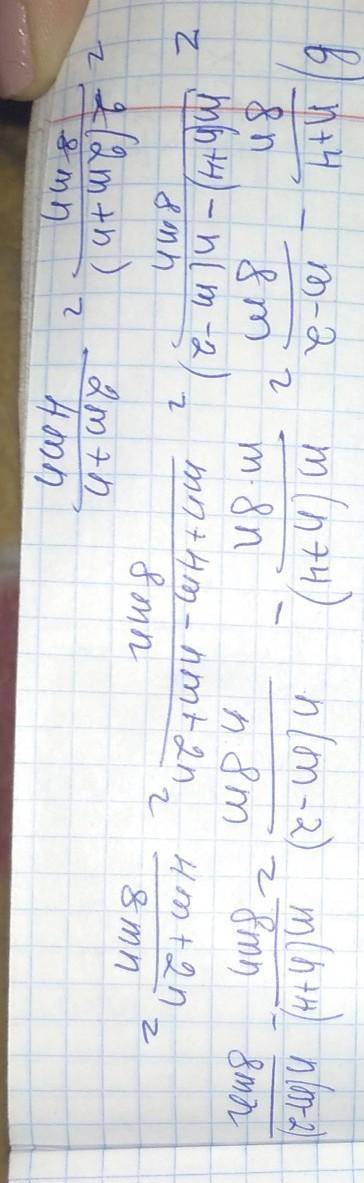 в) n+4/8n - m-2/8m = m(n+4)/m·8n - n(m-2)/n·8m = m(n+4)/8mn - n(m-2)/8mn
= m(n+4)-n(m-2)/8mn = mn+4m-nm+2n/8mn = 4m+2n/8mn =
= 2(2m+n)/8mn = 2m+n/4mn